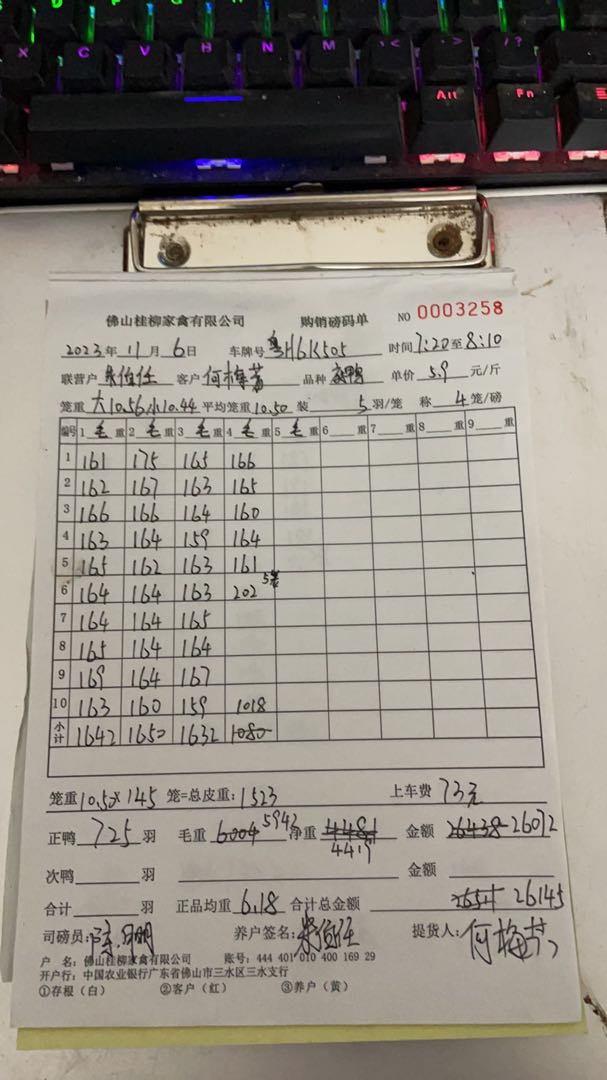 佛山桂柳家禽有限公司 购销磅码单 NO 0003258
2023年11月6日 车牌号 粤H6K505 时间7:20至8:10
联营户 朱伯任 客户 何梅芳 品种 鸭 单价 5.9 元/斤
笼重 大10.56小10.44 平均笼重10.50 装 5 羽/笼 称 4 笼/磅
编号 1 毛 重 2 毛 重 3 毛 重 4 毛 重 5 毛 重 6 重 7 重 8 重 9 重
1 161 175 165 166
2 162 167 163 165
3 166 166 164 160
4 163 164 159 164
5 165 162 163 161
6 164 164 163 202 5笼
7 164 164 165
8 165 164 164
9 169 164 167
10 163 160 159 1018
小计 1642 1650 1632 1080
笼重10.50×145 笼=总皮重:1523 上车费 73元
正鸭 725 羽 毛重 6004 5942 净重 4481 金额 26438 26072
4419
次鸭 羽 金额
合计 羽 正品均重 6.18 合计总金额 26511 26145
司磅员: 养户签名:朱伯任 提货人:何梅芳
户 名:佛山桂柳家禽有限公司 账号:444 401 010 400 169 29
开户行:中国农业银行广东省佛山市三水区三水支行
①存根(白) ②客户(红) ③养户(黄)
X C V B N M < > ? /
Alt Fn